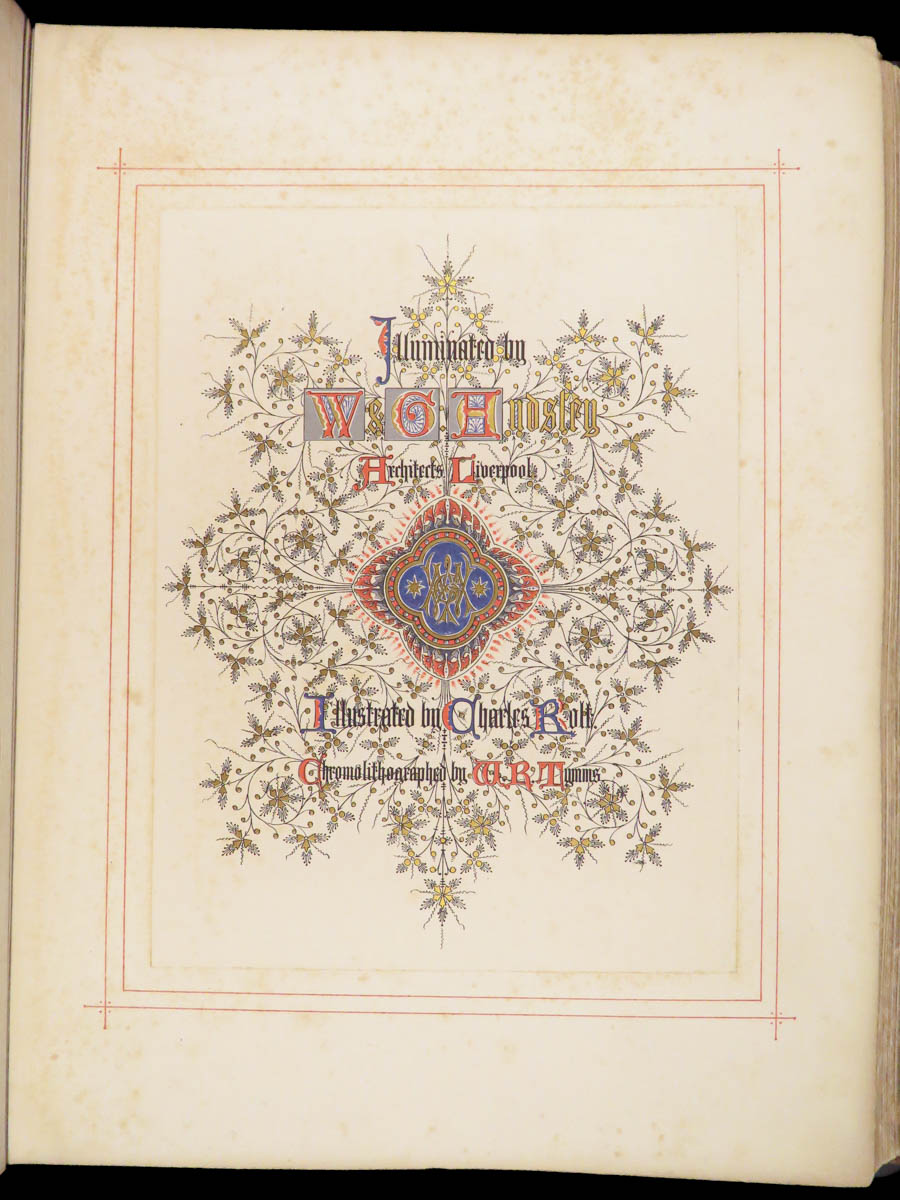 Illuminated by
W & G Audsley
Architects Liverpool
Illustrated by Charles Rolt
Chromolithographed by W. R. Tymms